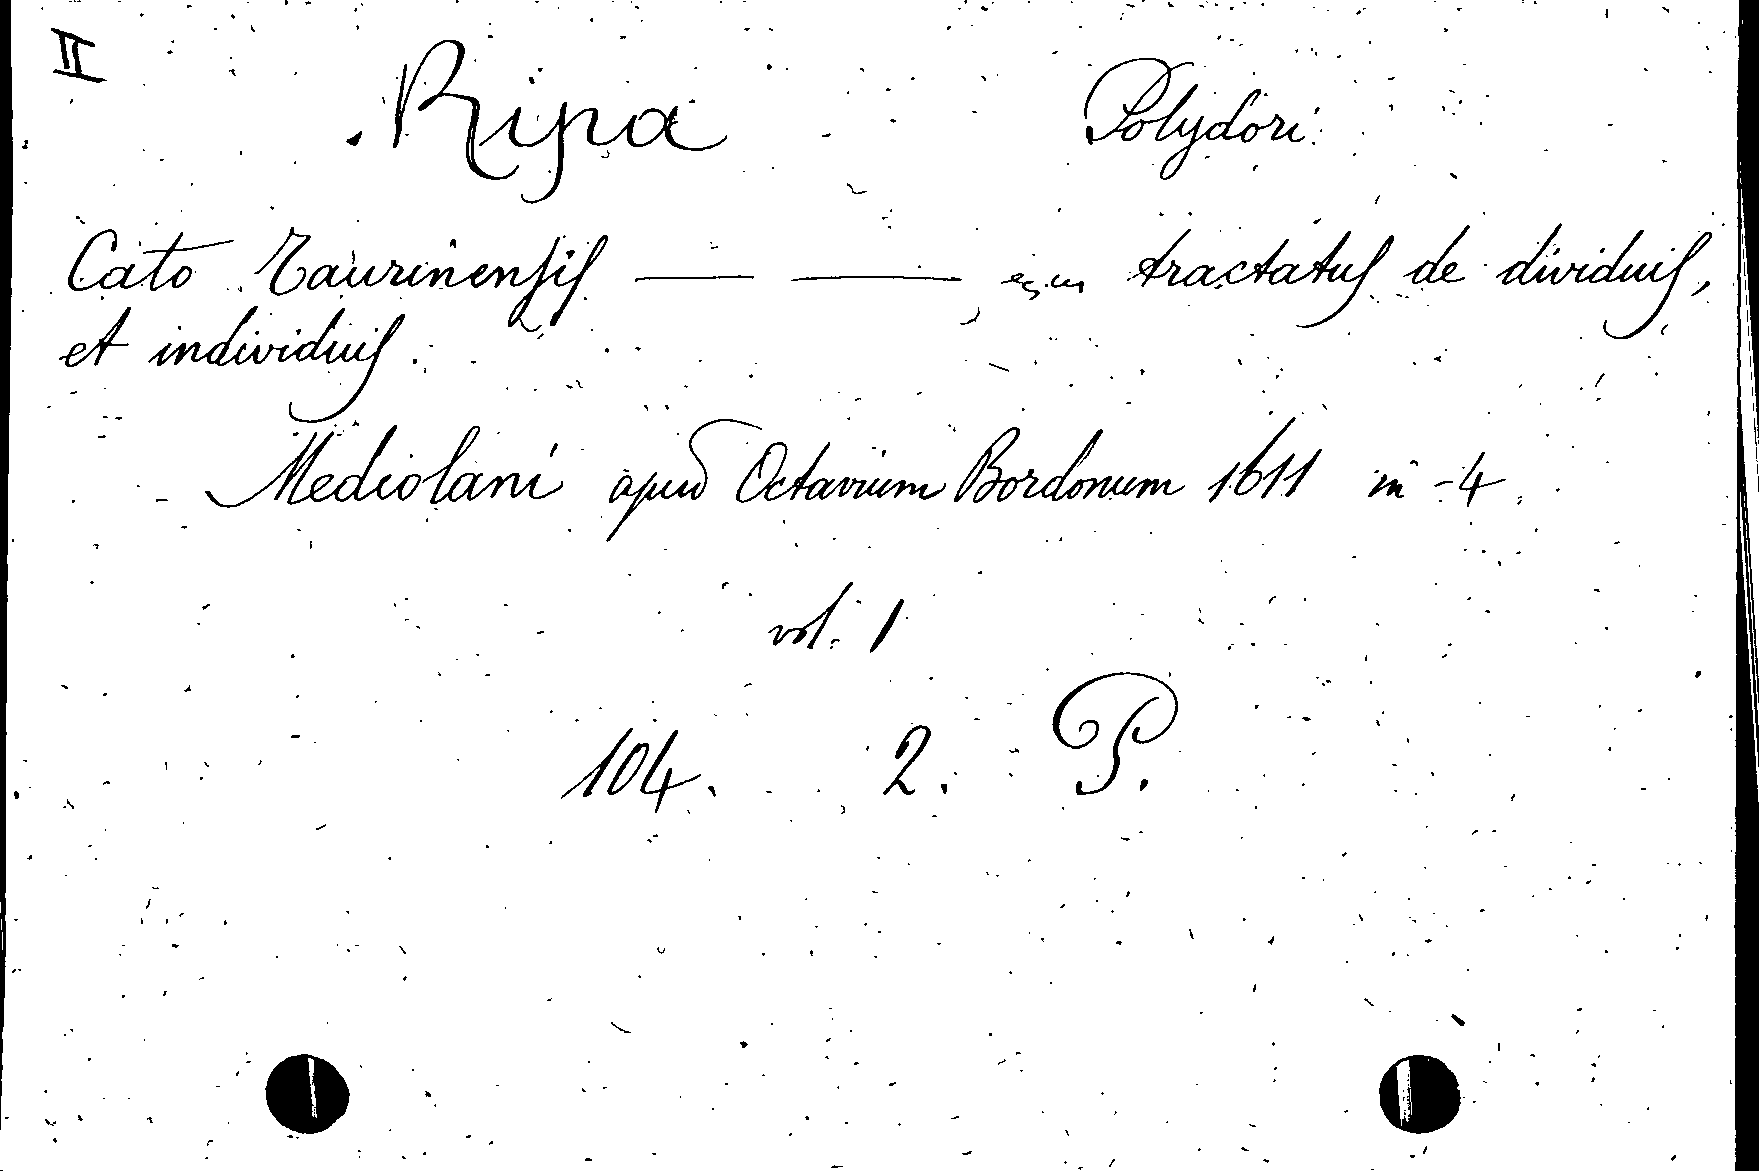 II
Ripa Polydori
Cato Taurinensis — — tractatus de dividuis,
et individuis.
Mediolani apud Octavium Bordonum 1611 in -4
vol. 1
104. 2. P.